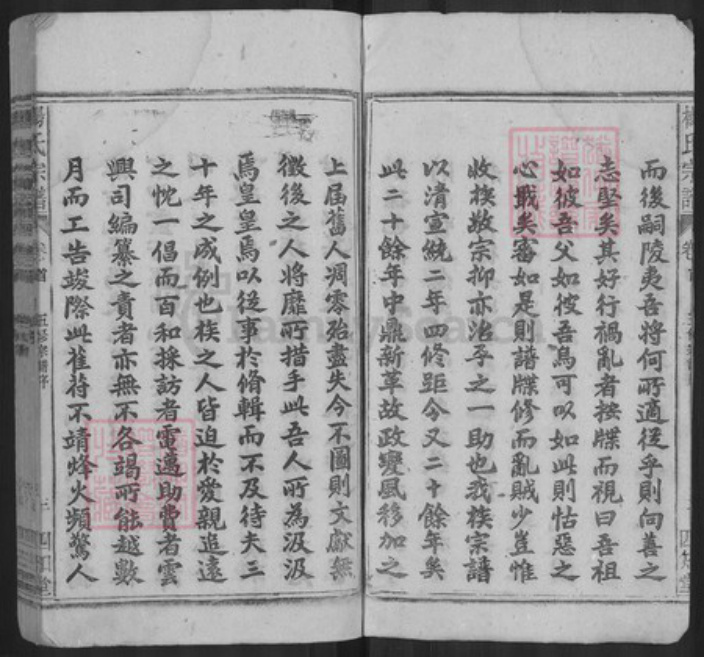 楊氏宗譜
卷首
而後嗣陵夷吾將何所適從乎則向善之
志堅矣其好行禍亂者按牒而視曰吾祖
如彼吾父如彼吾烏可以如此則怙惡之
心戢矣審如是則譜牒修而亂賊少豈惟
收族敬宗抑亦治平之一助也我族宗譜
以清宣統二年四修距今又二十餘年矣
此二十餘年中鼎新革故政變風移加之
上届舊人凋零殆盡失今不圖則文獻無
徵後之人將靡所措手此吾人所為汲汲
焉皇皇焉以從事於脩輯而不及待夫三
十年之成例也族之人皆迫於愛親追遠
之忱一倡而百和採訪者電邁助費者雲
興司編纂之責者亦無不各竭所能越數
月而工告竣際此萑苻不靖烽火頻驚人
楊氏宗譜
卷首
五修宗譜序
四知堂
FamilySearch